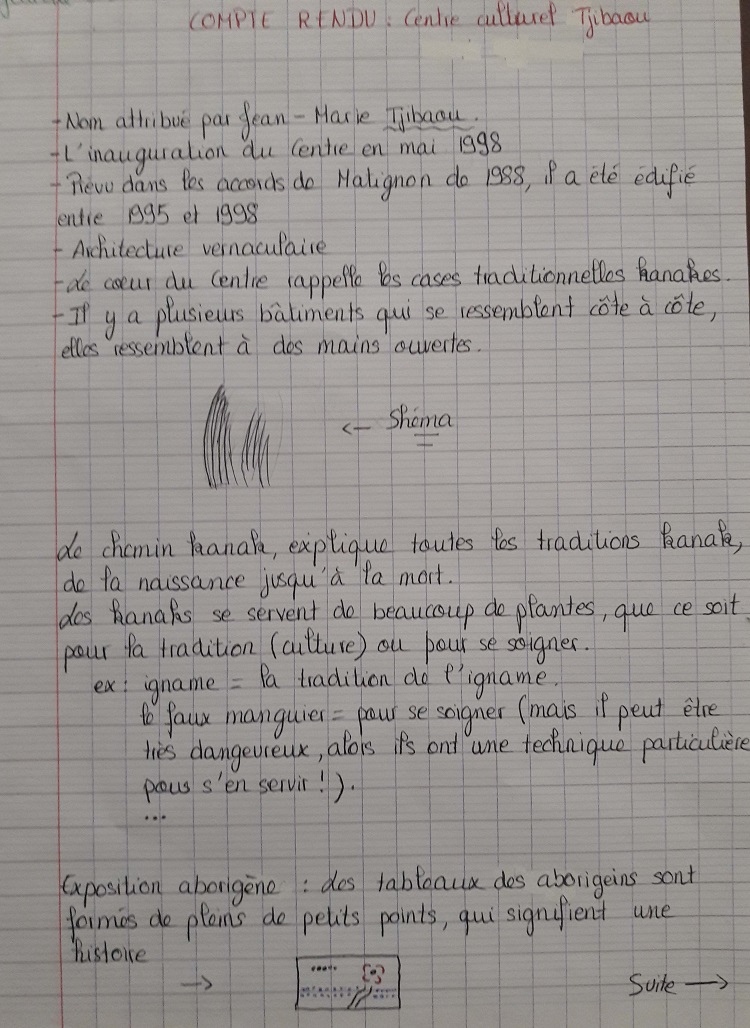 COMPTE RENDU : Centre culturel Tjibaou
- Nom attribué par Jean - Marie Tjibaou.
- L'inauguration du Centre en mai 1998
- Prévu dans les accords de Matignon de 1988, il a été édifié
entre 1995 et 1998
- Architecture vernaculaire
- Le cœur du Centre rappelle les cases traditionnelles kanakes.
- Il y a plusieurs bâtiments qui se ressemblent côte à côte,
elles ressemblent à des mains ouvertes.
<- Shéma
Le chemin kanak, explique toutes les traditions kanak,
de la naissance jusqu'à la mort.
Les kanaks se servent de beaucoup de plantes, que ce soit
pour la tradition (culture) ou pour se soigner.
ex : igname = la tradition de l'igname.
le faux manguier = pour se soigner (mais il peut être
très dangeureux, alors ils ont une technique particulière
pour s'en servir !).
...
Exposition aborigène : des tableaux des aborigeins sont
formés de pleins de petits points, qui signifient une
histoire
->
Suite ->